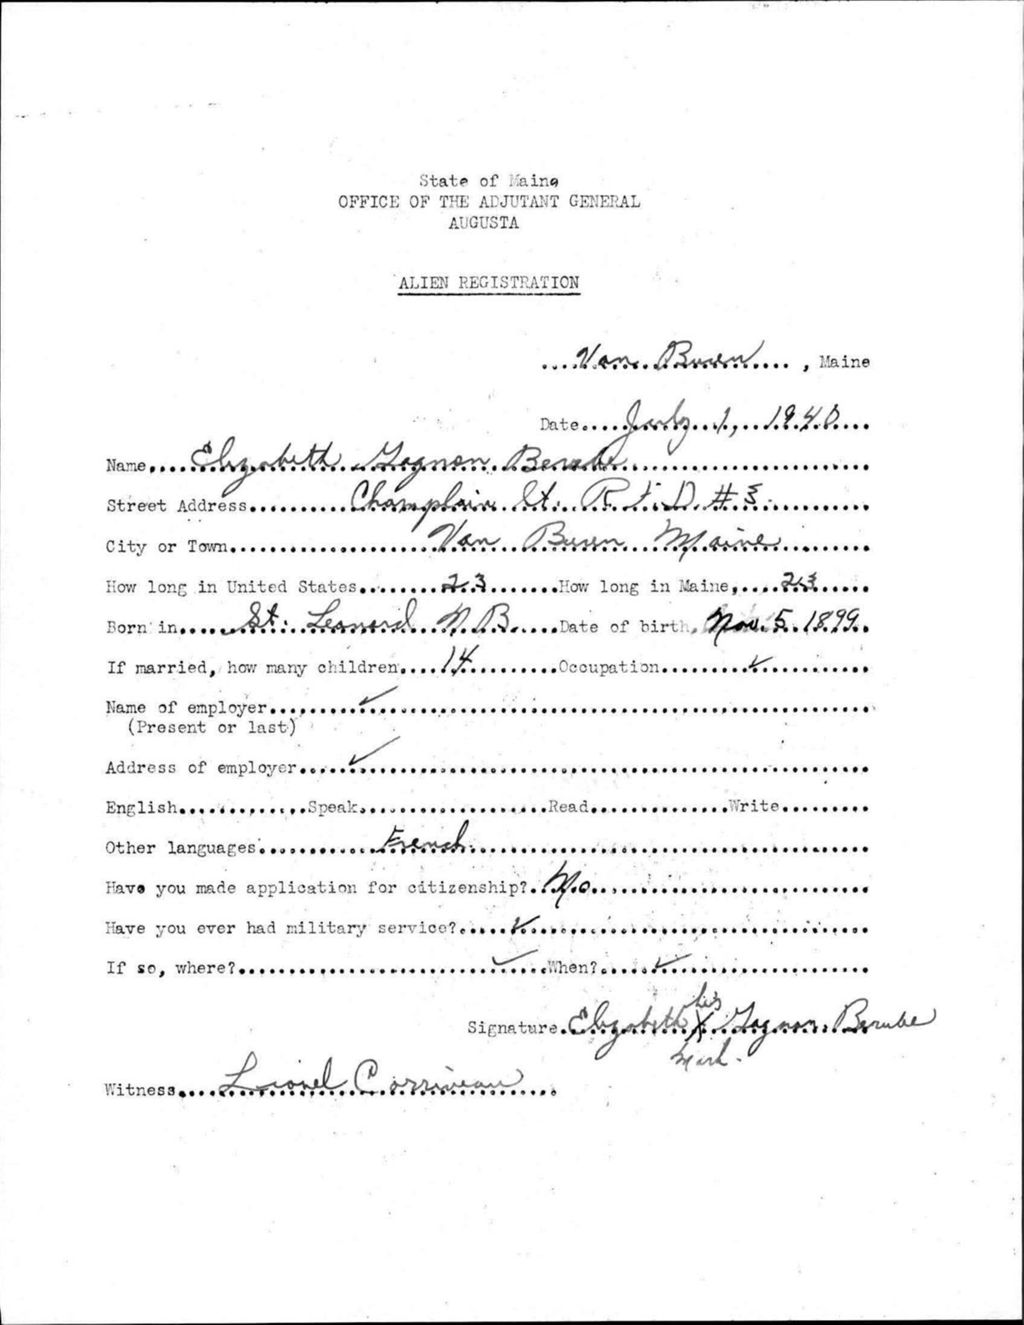 State of Maine
OFFICE OF THE ADJUTANT GENERAL
AUGUSTA
ALIEN REGISTRATION
Van Buren, Maine
Date July 1, 1940
Name Elizabeth Gagnon Berube
Street Address Champlain St. R.F.D. #3
City or Town Van Buren Maine
How long in United States 23 How long in Maine 23
Born in St. Leonard N.B. Date of birth Nov. 5. 1899
If married, how many children 14 Occupation ✓
Name of employer ✓
(Present or last)
Address of employer ✓
English Speak Read Write
Other languages French
Have you made application for citizenship? No
Have you ever had military service? ✓
If so, where? ✓ When? ✓
his
Signature Elizabeth X Gagnon Berube
Mark.
Witness Lionel Corriveau